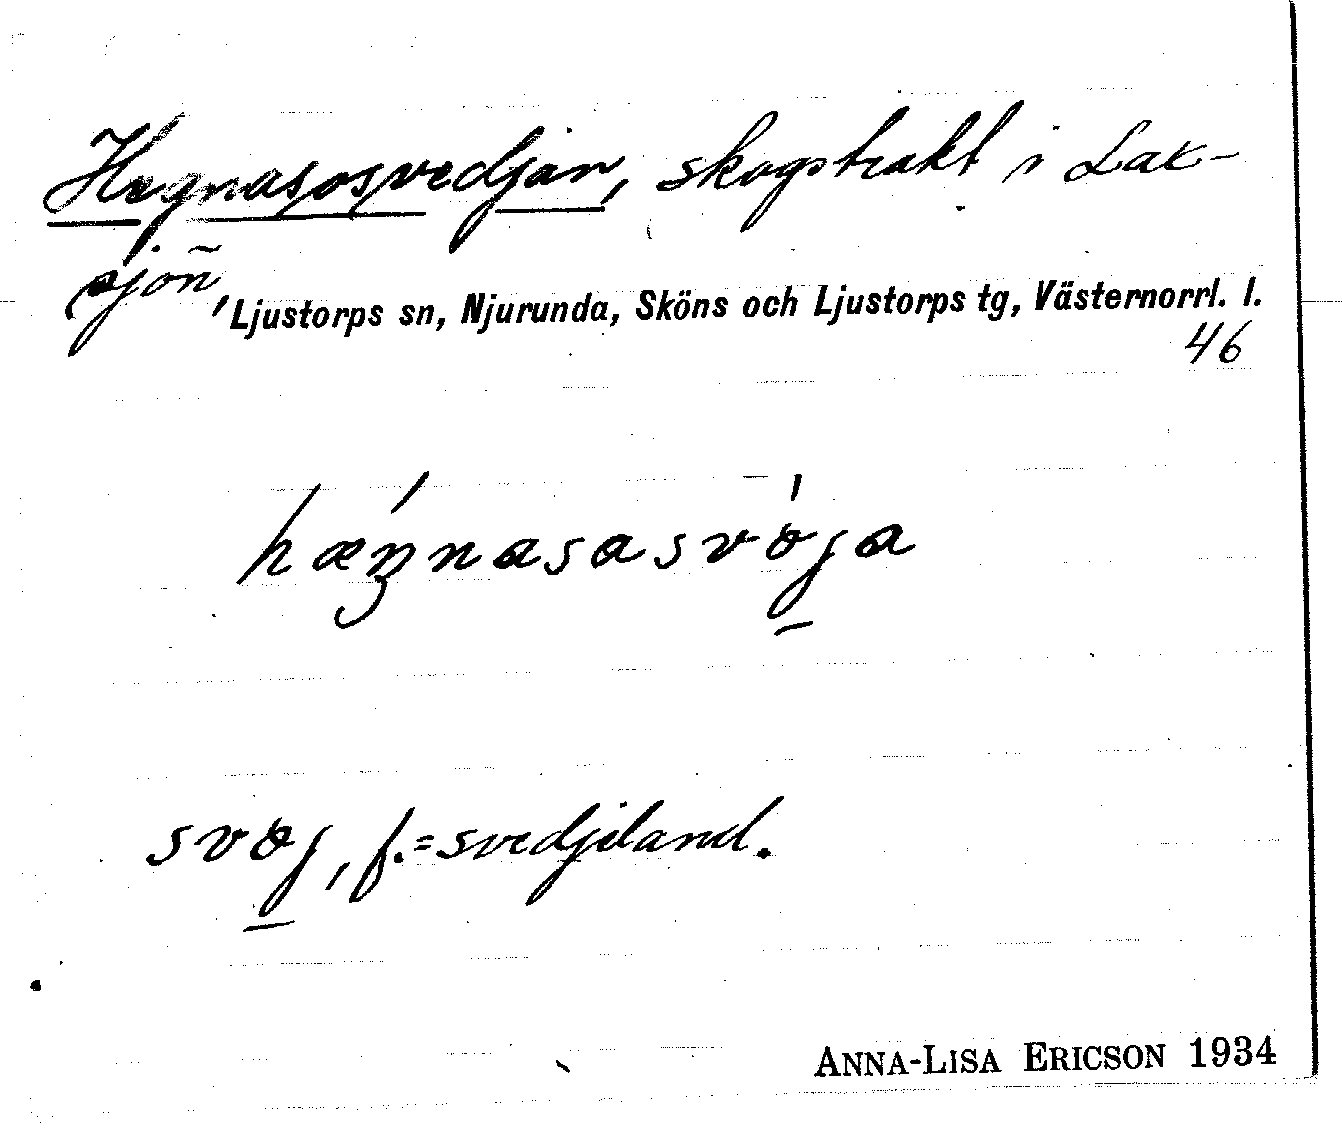 Hegnasosvedjan, skogstrakt i Lax-
sjön,
Ljustorps sn, Njurunda, Sköns och Ljustorps tg, Västernorrl. l.
46
svöj, f. = svedjeland.
ANNA-LISA ERICSON 1934